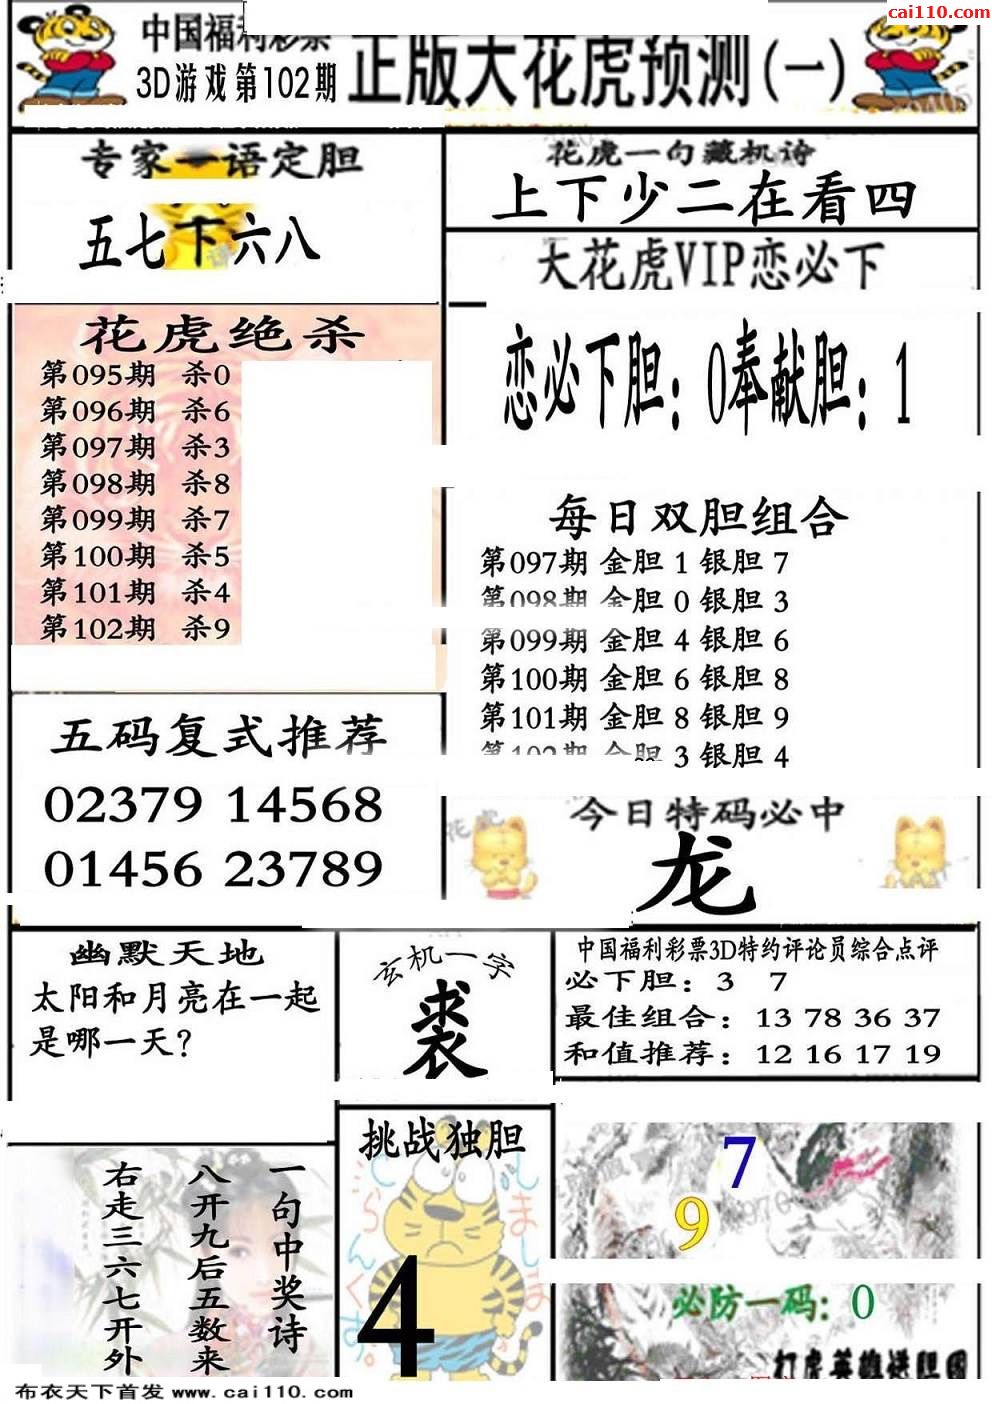 cai110.com
中国福利彩票
3D游戏第102期
正版大花虎预测(一)
专家一语定胆
五七下六八
花虎一句藏机诗
上下少二在看四
大花虎VIP恋必下
恋必下胆：0奉献胆：1
花虎绝杀
第095期 杀0
第096期 杀6
第097期 杀3
第098期 杀8
第099期 杀7
第100期 杀5
第101期 杀4
第102期 杀9
每日双胆组合
第097期 金胆 1 银胆 7
第098期 金胆 0 银胆 3
第099期 金胆 4 银胆 6
第100期 金胆 6 银胆 8
第101期 金胆 8 银胆 9
第102期 金胆 3 银胆 4
五码复式推荐
02379 14568
01456 23789
今日特码必中
龙
幽默天地
太阳和月亮在一起
是哪一天?
玄机一字
裘
中国福利彩票3D特约评论员综合点评
必下胆：3 7
最佳组合：13 78 36 37
和值推荐：12 16 17 19
一句中奖诗
八开九后五数来
右走三六七开外
挑战独胆
4
7
9
必防一码：0
打虎英雄送胆图
布衣天下首发 www.cai110.com